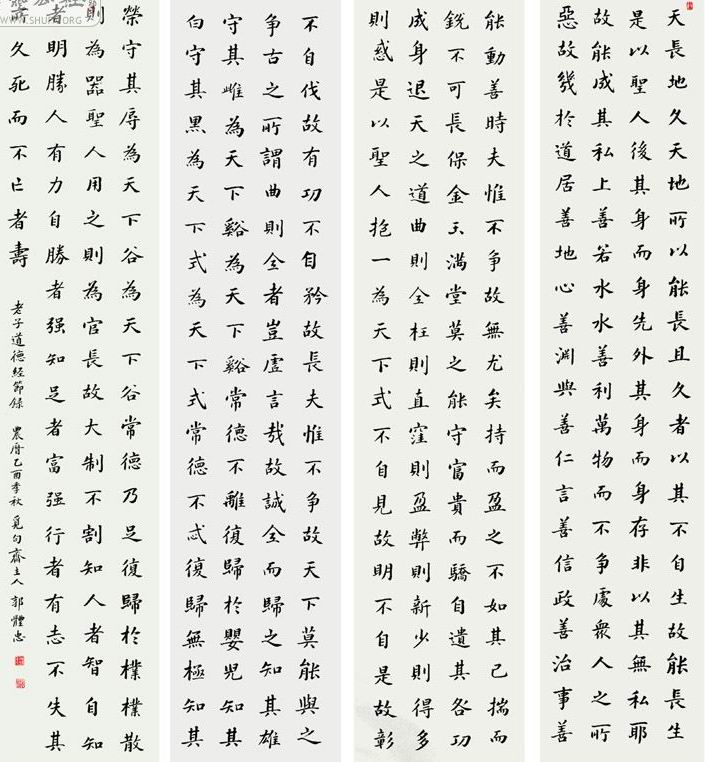 天長地久天地所以能長且久者以其不自生故能長生
是以聖人後其身而身先外其身而身存非以其無私耶
故能成其私上善若水水善利萬物而不爭處衆人之所
惡故幾於道居善地心善淵與善仁言善信政善治事善
能動善時夫惟不爭故無尤矣持而盈之不如其已揣而
銳不可長保金玉滿堂莫之能守富貴而驕自遺其各功
成身退天之道曲則全枉則直窪則盈弊則新少則得多
則惑是以聖人抱一為天下式不自見故明不自是故彰
不自伐故有功不自矜故長夫惟不爭故天下莫能與之
爭古之所謂曲則全者豈虛言哉故誠全而歸之知其雄
守其雌為天下谿為天下谿常德不離復歸於嬰兒知其
白守其黑為天下式為天下式常德不忒復歸無極知其
榮守其辱為天下谷為天下谷常德乃足復歸於樸樸散
則為器聖人用之則為官長故大制不割知人者智自知
者明勝人有力自勝者强知足者富强行者有志不失其
久死而不亡者壽
老子道德經節錄 農曆乙酉季秋 覓句齋主人郭體忠